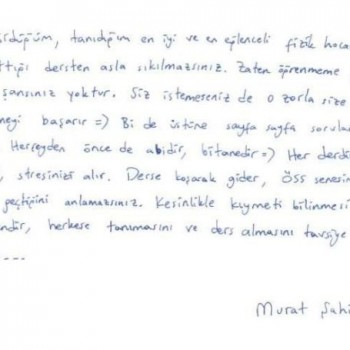 rdüğüm, tanıdığım en iyi ve en eğlenceli fizik hoca
ttığı dersten asla sıkılmazsınız. Zaten öğrenmeme
şansınız yoktur. Siz istemeseniz de o zorla size
meği başarır =) Bi de üstüne sayfa sayfa sorular
Herşeyden önce de abidir, bitanedir =) Her derdi
, stresinizi alır. Derse koşarak gider, ÖSS senesin
geçtiğini anlamazsınız. Kesinlikle kıymeti bilinmesi
ndir, herkese tanımasını ve ders almasını tavsiye
----
Murat Şahi